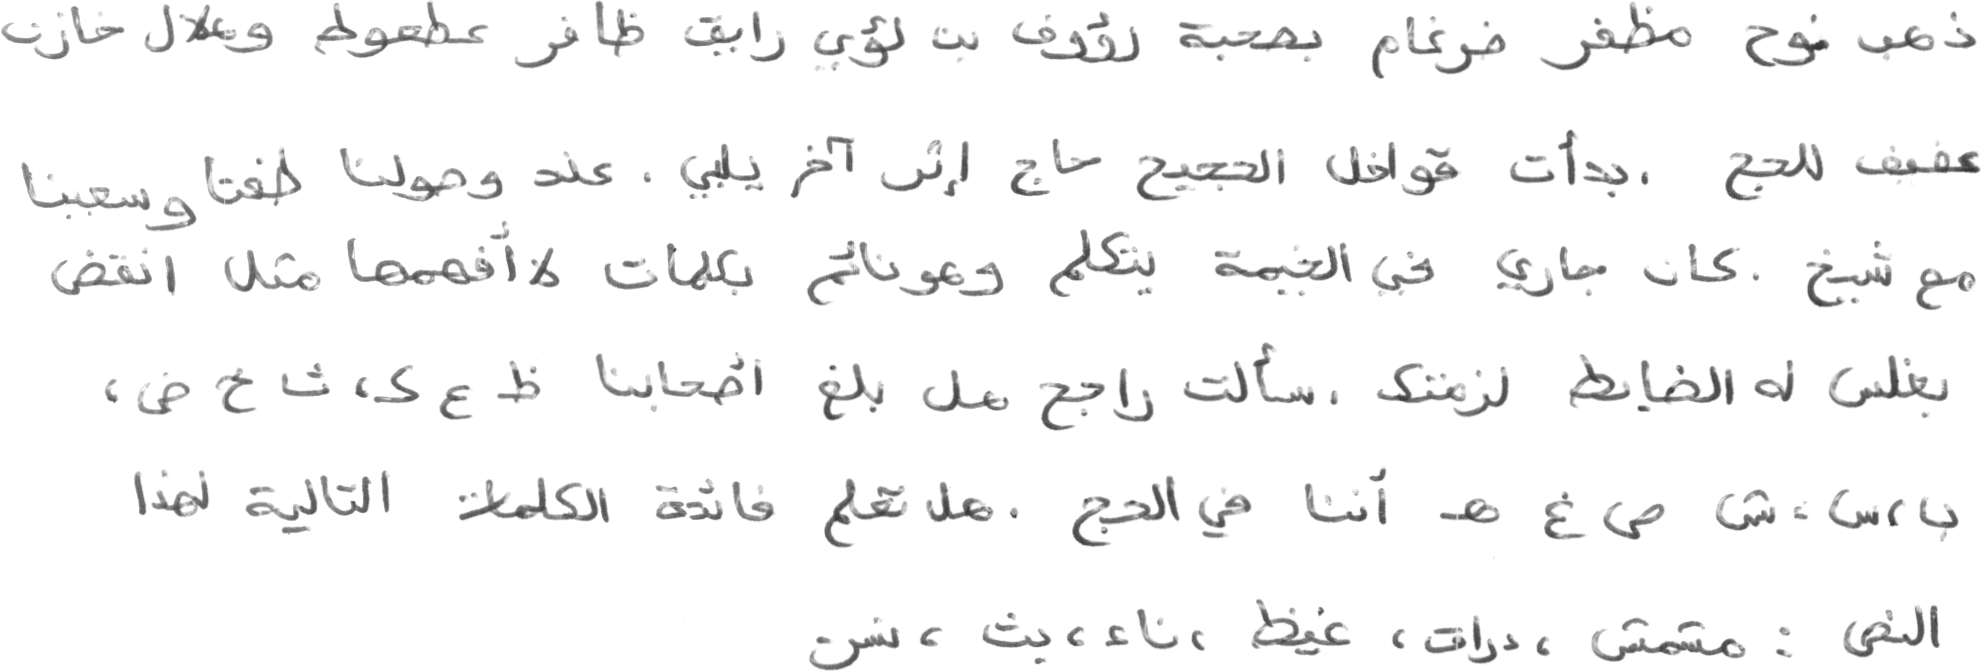 ذهب نوح مظفر ضرغام بصحبة رؤوف بن لؤي رايق ظافر عطعوط وهلال خازن
عفيف للحج . بدأت قوافل الحجيح حاج إثر آخر يلبي . عند وصولنا طفنا وسعينا
مع شيخ . كان جاري في الخيمة يتكلم وهو نائم بكلمات لا أفهمها مثل انقض
بغلس له الضابط لزمتك . سألت راجح هل بلغ أصحابنا ظ ع ك، ث خ ض ،
ب ، س ، ش ص غ هـ أننا في الحج . هل تعلم فائدة الكلمات التالية لهذا
النص : مشمش ، دراق ، غيظ ، ناء ، بث ، نسن